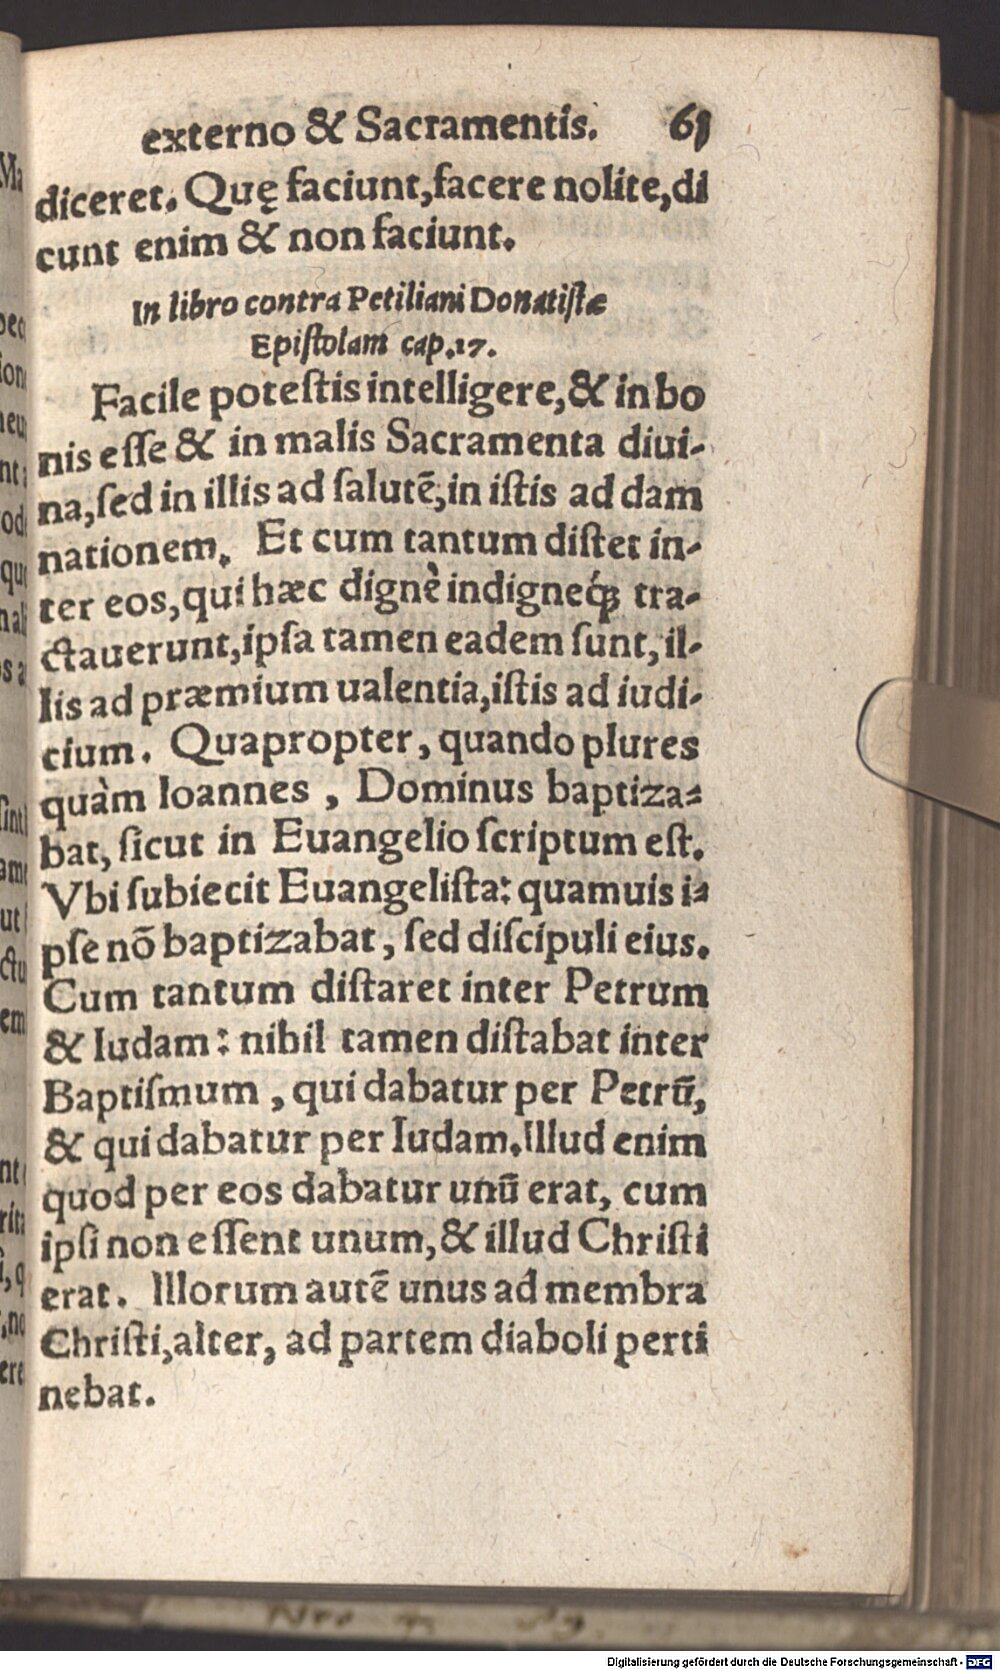 externo & Sacramentis. 61
diceret. Quę faciunt, facere nolite, di
cunt enim & non faciunt.
In libro contra Petiliani Donatiſtæ
Epiſtolam cap. 17.
Facile poteſtis intelligere, & in bo
nis eſſe & in malis Sacramenta diui-
na, ſed in illis ad ſalutē, in iſtis ad dam
nationem. Et cum tantum diſtet in-
ter eos, qui hæc dignè indigneq́ꝫ tra-
ctauerunt, ipſa tamen eadem ſunt, il-
lis ad præmium ualentia, iſtis ad iudi-
cium. Quapropter, quando plures
quàm Ioannes, Dominus baptiza-
bat, ſicut in Euangelio ſcriptum eſt.
Vbi ſubiecit Euangeliſta: quamuis i-
pſe nō baptizabat, ſed diſcipuli eius.
Cum tantum diſtaret inter Petrum
& Iudam: nihil tamen diſtabat inter
Baptiſmum, qui dabatur per Petrū,
& qui dabatur per Iudam. Illud enim
quod per eos dabatur unū erat, cum
ipſi non eſſent unum, & illud Chriſti
erat. Illorum autē unus ad membra
Chriſti, alter, ad partem diaboli perti
nebat.
Digitalisierung gefördert durch die Deutsche Forschungsgemeinschaft - DFG